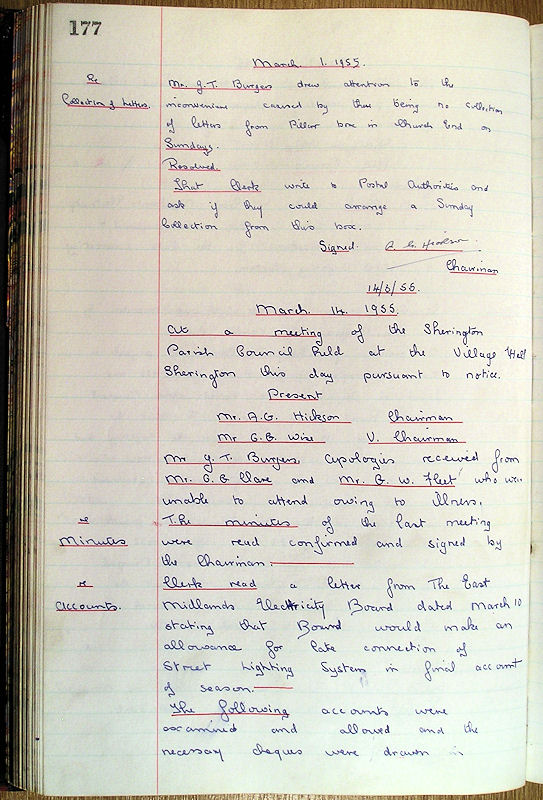 177
March 1. 1955.
Re
Collection of Letters.
Mr. J.T. Burgess drew attention to the
inconvenience caused by there being no collection
of letters from Pillar box in Church End on
Sundays.
Resolved.
That Clerk write to Postal Authorities and
ask if they could arrange a Sunday
Collection from this box.
Signed. A. G. Hickson.
Chairman
14/3/55.
March. 14. 1955.
At a meeting of the Sherington
Parish Council held at the Village Hall
Sherington this day pursuant to notice.
Present
Mr. A.G. Hickson Chairman
Mr G.B. Wise V. Chairman
Mr J.T. Burgess, apologies received from
Mr. G.G. and Mr. G. W. Fleet who were
unable to attend owing to Illness.
re
Minutes
The minutes of the last meeting
were read confirmed and signed by
the Chairman.
re
accounts.
Clerk read a letter from The East
Midlands Electricity Board dated March 10
stating that Board would make an
allowance for late connection of
Street Lighting System in final account
of season.
The following accounts were
examined and allowed and the
necessay cheques were drawn in